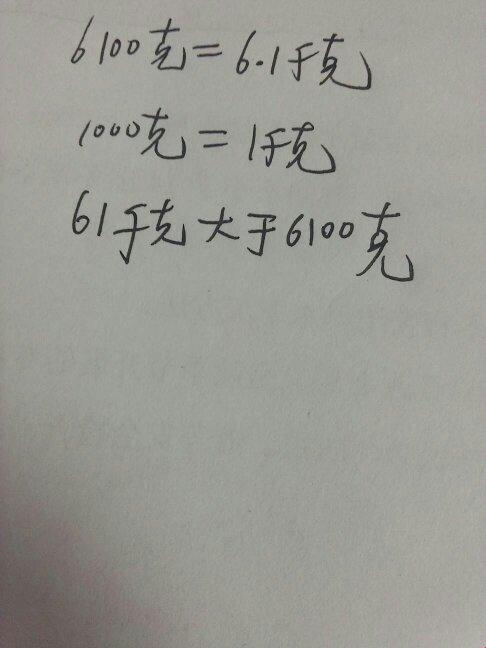 6100克=6.1千克
1000克=1千克
61千克大于6100克